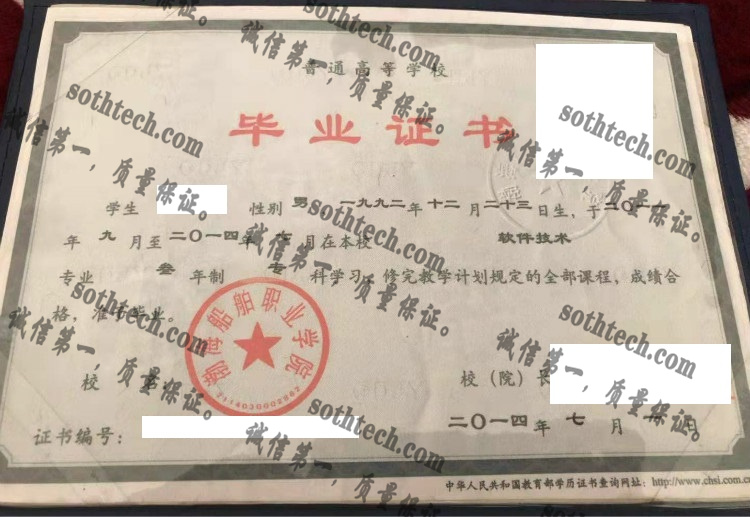 普通高等学校
毕业证书
学生 性别 男 一九九二年十二月二十三日生，于二〇一一
年九月至二〇一四年 月在本校 软件技术
专业 叁年制 专科学习，修完教学计划规定的全部课程，成绩合
格，准予毕业。
渤海船舶职业学院
2114030002862
校
校（院）长
二〇一四年七月 日
证书编号：
中华人民共和国教育部学历证书查询网址：http://www.chsi.com.cn
sothtech.com
诚信第一，质量保证。
sothtech.com
诚信第一，质量保证。
sothtech.com
诚信第一，质量保证。
sothtech.com
诚信第一，质量保证。
sothtech.com
诚信第一，质量保证。
sothtech.com
诚信第一，质量保证。
sothtech.com
诚信第一，质量保证。
sothtech.com
诚信第一，质量保证。